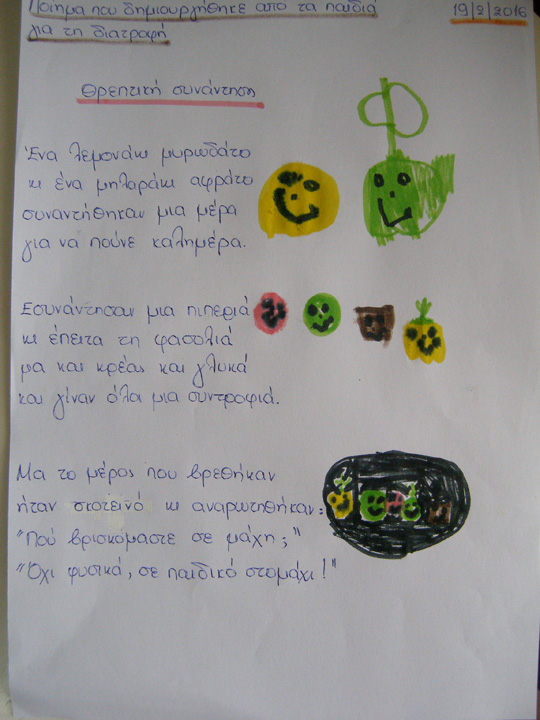 Ποίημα που δημιουργήθηκε από τα παιδιά
για τη διατροφή
19/2/2016
Θρεπτική συνάντηση
Ένα λεμονάκι μυρωδάτο
κι ένα μηλαράκι αφράτο
συναντήθηκαν μια μέρα
για να πούνε καλημέρα.
Εσυνάντησαν μια πιπεριά
κι έπειτα τη φασολιά
μα και κρέας και γλυκά
και γίναν όλα μια συντροφιά.
Μα το μέρος που βρεθήκαν
ήταν σκοτεινό κι αναρωτηθήκαν:
"Πού βρισκόμαστε σε μάχη;"
"Όχι φυσικά, σε παιδικό στομάχι!"